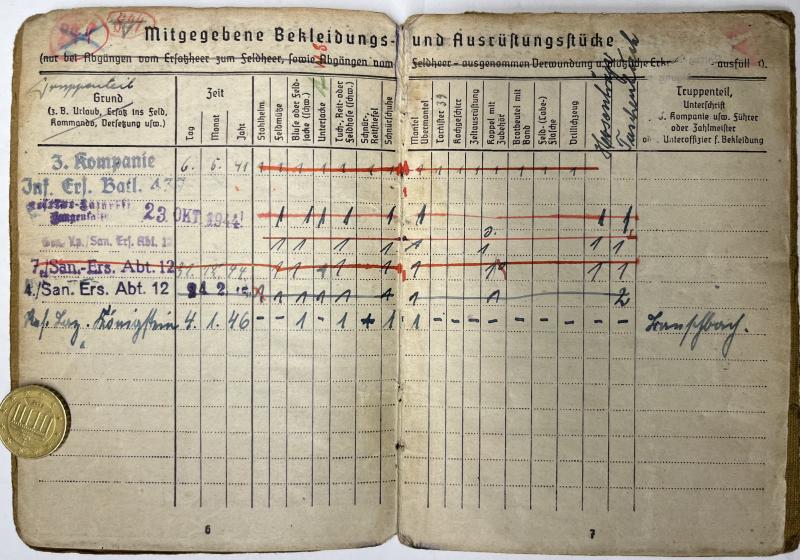 Mitgegebene Bekleidungs- und Ausrüstungsstücke
(nur bei Abgängen vom Ersatzheer zum Feldheer, sowie Abgängen vom Feldheer – ausgenommen Verwundung u. plötzliche ausfüll
Truppenteil
Grund
(z. B. Urlaub, Ersatz ins Feld,
Kommando, Versetzung usw.)
Zeit
Tag
Monat
Jahr
Stahlhelm
Feldmütze
Bluse oder Feld-
jacke (schw.)
Unterjacke
Tuch-, Reit- oder
Feldhose (schw.)
Schnür-,
Reitstiefel
Schnürschuhe
Mantel
Übermantel
Tornister 39
Kochgeschirr
Zeltausrüstung
Koppel mit
Zubehör
Brotbeutel mit
Band
Feld- (Labe-)
Flasche
Drillichzeug
Truppenteil,
Unterschrift
d. Kompanie usw. Führer
oder Zahlmeister
Unteroffizier f. Bekleidung
3. Kompanie 6. 6. 41
Inf. Ers. Batl. 437
23. OKT 1944
San. Ers. Abt. 12
7./San.-Ers. Abt. 12 31. 12. 44.
4./San. Ers. Abt. 12 24. 2. 45
Res. Laz. Königstein 4. 1. 46 - - 1 - 1 + 1 1 - - - - - - -
6
7